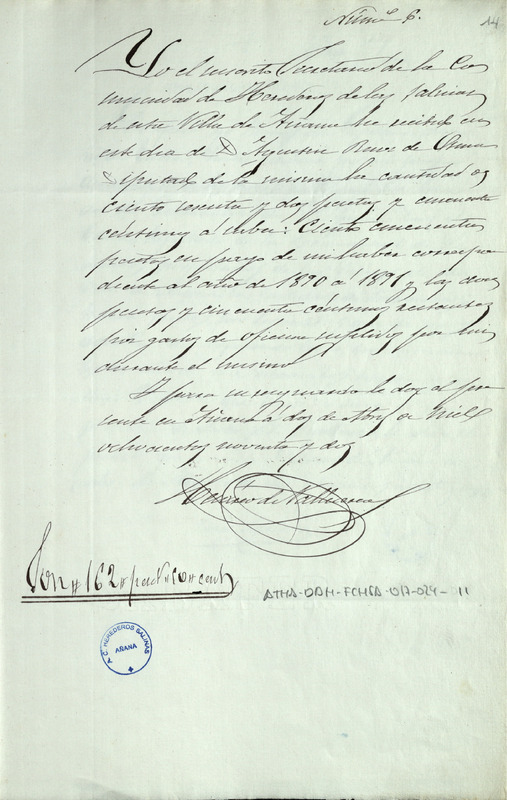 Núm.º 6.
14
Yo el infrascrito Secretario de la Co
munidad de Herederos de las Salinas
de esta Villa de Añana he recibido en
este dia de D. Agustin Ruiz de
Diputado de la misma la cantidad de
ciento sesenta y dos pesetas y cincuenta
céntimos á saber: Ciento cincuenta
pesetas en pago de mi haber correspon
diente al año de 1890 á 1891 y las doce
pesetas y cincuenta céntimos restantes
por gastos de oficina suplidos por mi
durante el mismo
Y para su resguardo le doy el pre
sente en Añana á dos de de Mil
ochocientos noventa y dos
de
Son # 162 # pest.s 50 cent.s
ATHA-DAH-FCHSA-017-024-11
A.C. HEREDEROS SALINAS
AÑANA